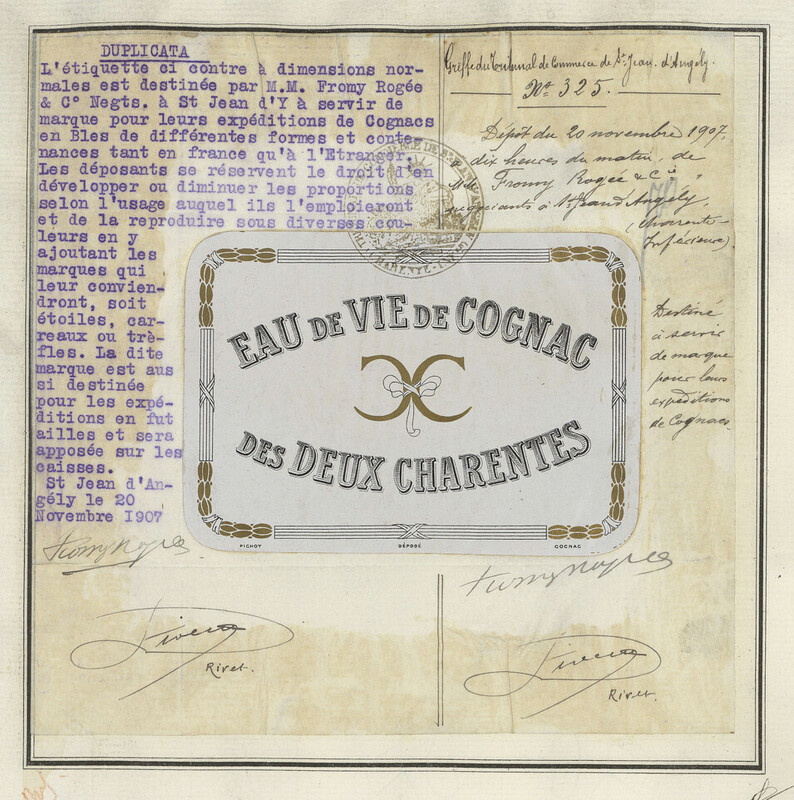 DUPLICATA
L'étiquette ci contre à dimensions nor-
males est destinée par M.M. Fromy Rogée
& C° Negts. à St Jean d'Y à servir de
marque pour leurs expéditions de Cognacs
en Bles de différentes formes et conte-
nances tant en france qu'à l'Etranger.
Les déposants se réservent le droit d'en
développer ou diminuer les proportions
selon l'usage auquel ils l'emploieront
et de la reproduire sous diverses cou-
leurs en y
ajoutant les
marques qui
leur convien-
dront, soit
étoiles, car-
reaux ou trè-
fles. La dite
marque est aus
si destinée
pour les expé-
ditions en fut
ailles et sera
apposée sur les
caisses.
St Jean d'An-
gély le 20
Novembre 1907
Greffe du Tribunal de Commerce de St Jean. d'Angély.
No 325.
Dépôt du 20 novembre 1907,
dix heures du matin, de
MM. Fromy Rogée & Cie
négociants à St Jean d'Angély,
(Charente-
Inférieure).
Destiné
à servir
de marque
pour leurs
expéditions
de Cognacs.
EAU DE VIE DE COGNAC
DES DEUX CHARENTES
PICHOT DÉPOSÉ COGNAC
Rivet.
Rivet.